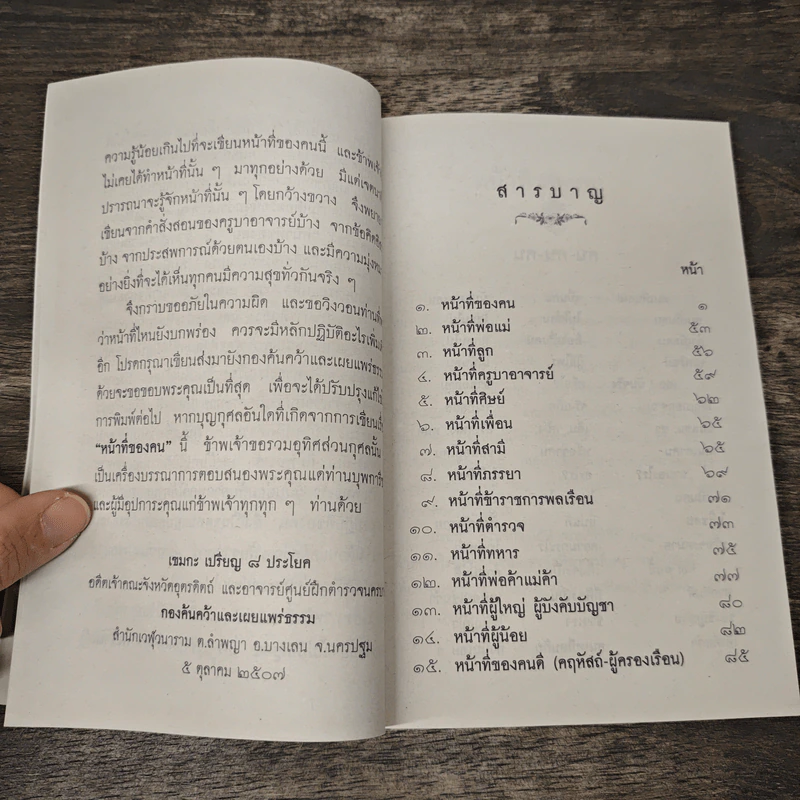 ความรู้น้อยเกินไปที่จะเขียนหน้าที่ของคนนี้ และข้าพเจ้า
ไม่เคยได้ทำหน้าที่นั้น ๆ มาทุกอย่างด้วย มีแต่เจตนา
ปรารถนาจะรู้จักหน้าที่นั้น ๆ โดยกว้างขวาง จึงพยา
เขียนจากคำสั่งสอนของครูบาอาจารย์บ้าง จากข้อคิด
บ้าง จากประสพการณ์ด้วยตนเองบ้าง และมีความมุ่ง
อย่างยิ่งที่จะได้เห็นทุกคนมีความสุขทั่วกันจริง ๆ
จึงกราบขออภัยในความผิด และขอวิงวอนท่านที่
ว่าหน้าที่ไหนยังบกพร่อง ควรจะมีหลักปฏิบัติอะไรเพิ่ม
อีก โปรดกรุณาเขียนส่งมายังกองค้นคว้าและเผยแพร่ธรรม
ด้วยจะขอขอบพระคุณเป็นที่สุด เพื่อจะได้ปรับปรุงแก้ไข
การพิมพ์ต่อไป หากบุญกุศลอันใดที่เกิดจากการเขียน
“หน้าที่ของคน” นี้ ข้าพเจ้าขอรวมอุทิศส่วนกุศลนั้น
เป็นเครื่องบรรณาการตอบสนองพระคุณแด่ท่านบุพการี
และผู้มีอุปการะคุณแก่ข้าพเจ้าทุกทุก ๆ ท่านด้วย
เขมกะ เปรียญ ๘ ประโยค
อดีตเจ้าคณะจังหวัดอุตรดิตถ์ และอาจารย์ศูนย์ฝึกตำรวจนครบาล
กองค้นคว้าและเผยแพร่ธรรม
สำนักเวฬุวนาราม ต.ลำพญา อ.บางเลน จ.นครปฐม
๕ ตุลาคม ๒๕๐๗
สารบาญ
หน้า
๑. หน้าที่ของคน ๑
๒. หน้าที่พ่อแม่ ๕๓
๓. หน้าที่ลูก ๕๖
๔. หน้าที่ครูบาอาจารย์ ๕๙
๕. หน้าที่ศิษย์ ๖๒
๖. หน้าที่เพื่อน ๖๕
๗. หน้าที่สามี ๖๕
๘. หน้าที่ภรรยา ๖๙
๙. หน้าที่ข้าราชการพลเรือน ๗๑
๑๐. หน้าที่ตำรวจ ๗๓
๑๑. หน้าที่ทหาร ๗๕
๑๒. หน้าที่พ่อค้าแม่ค้า ๗๗
๑๓. หน้าที่ผู้ใหญ่ ผู้บังคับบัญชา ๘๐
๑๔. หน้าที่ผู้น้อย ๘๒
๑๕. หน้าที่ของคนดี (คฤหัสถ์-ผู้ครองเรือน) ๘๕